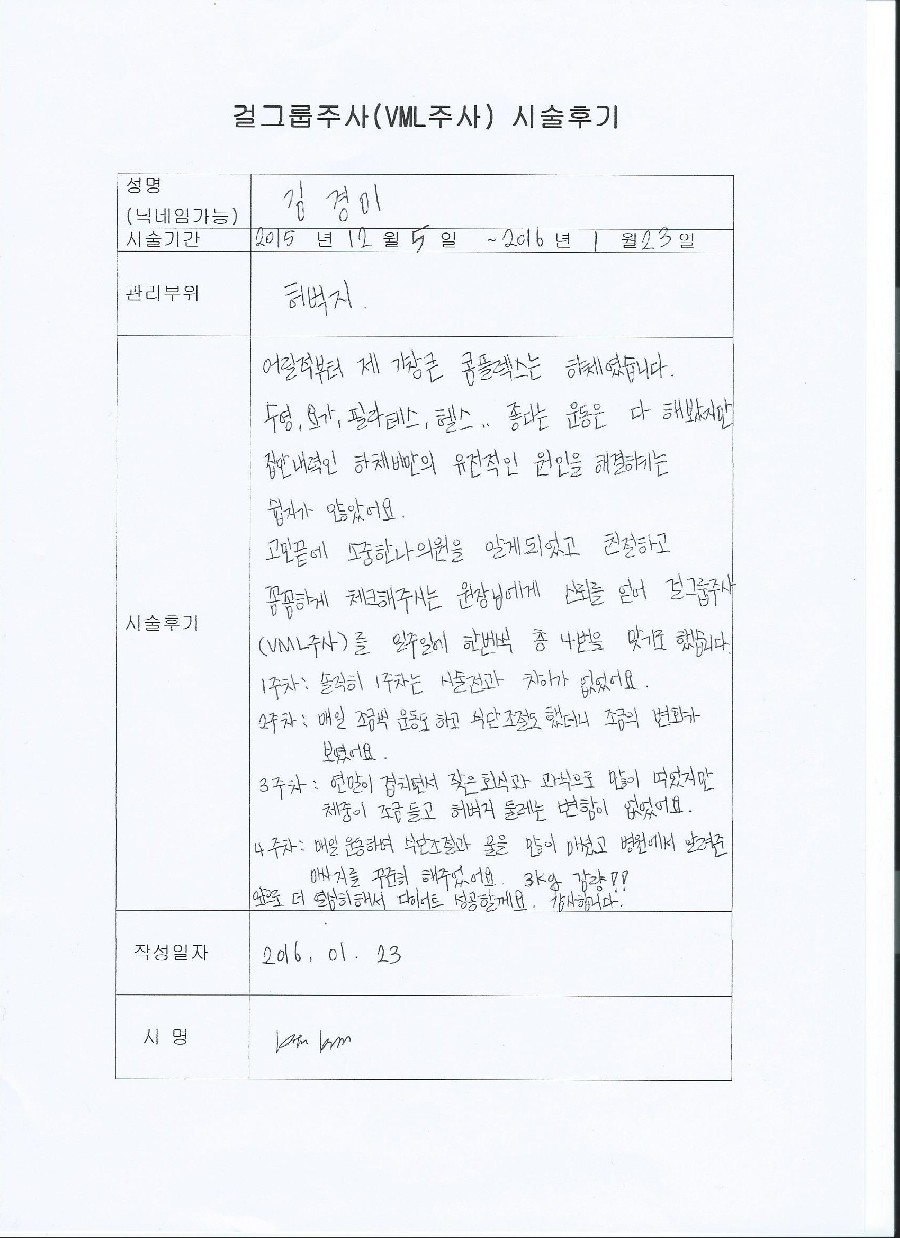 걸그룹주사(VML주사) 시술후기
성명
(닉네임가능)
김경미
시술기간
2015 년 12 월 5 일 ~2016 년 1 월 23 일
관리부위
허벅지.
시술후기
어릴적부터 제 가장큰 콤플렉스는 하체였습니다.
수영, 요가, 필라테스, 헬스.. 좋다는 운동은 다 해봤지만
집안내력인 하체비만의 유전적인 원인을 해결하기는
쉽지가 않았어요.
고민끝에 소중한나의원을 알게되었고 친절하고
꼼꼼하게 체크해주시는 원장님에게 신뢰를 얻어 걸그룹주사
(VML주사)를 일주일에 한번씩 총 4번을 맞기로 했습니다.
1주차: 솔직히 1주차는 시술전과 차이가 없었어요.
2주차: 매일 조금씩 운동도 하고 식단조절도 했더니 조금의 변화가
보였어요.
3주차: 연말이 겹치면서 잦은회식과 과식으로 많이 먹었지만
체중이 조금 들고 허벅지 둘레는 변함이 없었어요.
4주차: 매일 운동하며 식단조절과 물을 많이 마셨고 병원에서 알려준
마사지를 꾸준히 해주었어요. 3kg 감량!!
앞으로 더 열심히해서 다이어트 성공할게요. 감사합니다.
작성일자
2016. 01. 23
시 명